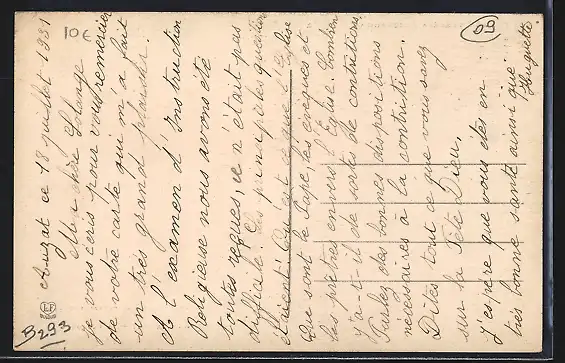 Auzat ce 18 juillet 1931
Ma chère Solange
je vous écris pour vous remercier
de votre carte qui m'a fait
un très grand plaisir.
A l'examen d'Instruction
Religieuse nous avons été
toutes reçues, ce n'était pas
difficile. les principales questions
étaient Qu'est ce que l'Eglise
Que sont le Pape, les évêques et
les prêtres envers l'Eglise. Combien
y a-t-il de sortes de contritions,
Parlez des bonnes dispositions
nécessaires à la contrition.
Dites tout ce que vous savez
sur la Fête Dieu,
J'espère que vous êtes en
très bonne santé ainsi que
Huguette
10€
09
B293